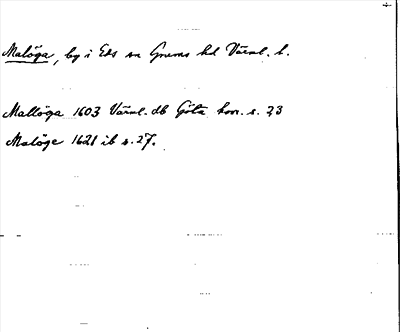 Malöga, by i Eds sn Grums hd Värml. l.
Mallöga 1603 Värml. db Göta kon. s. 23
Malöge 1621 ib s. 27.